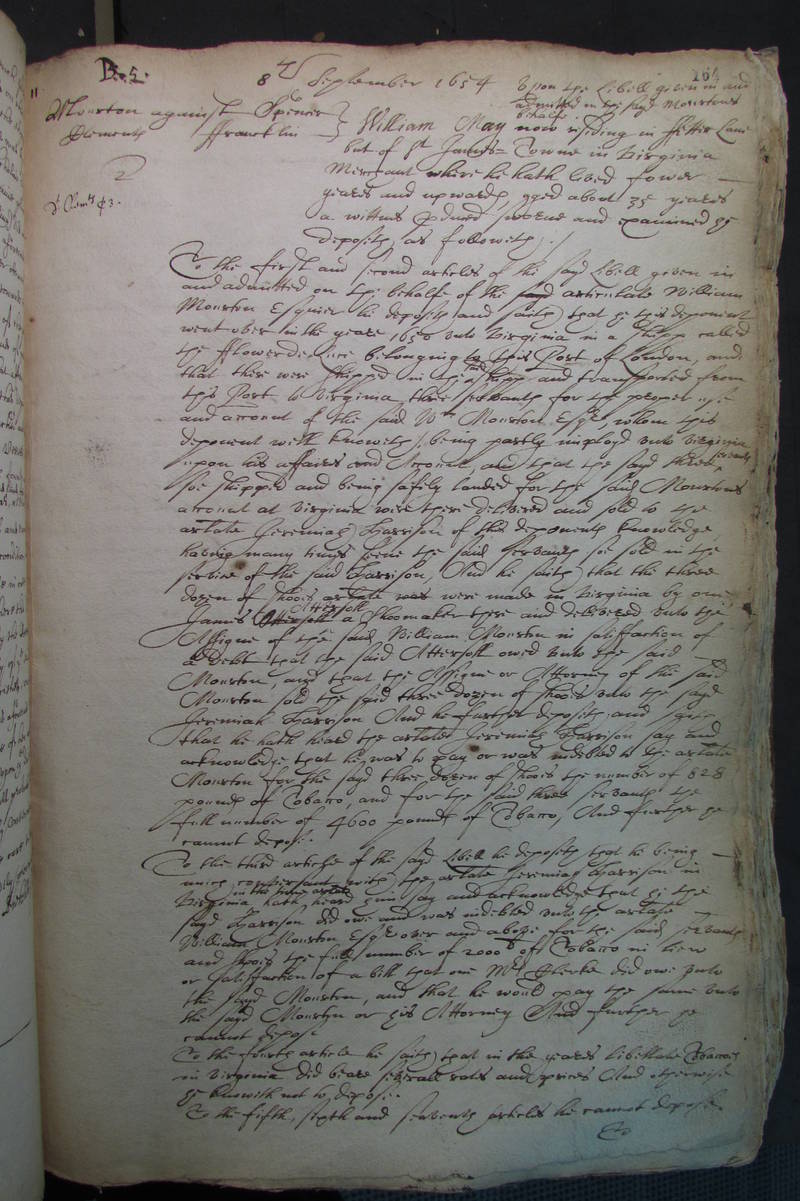 D. 5.
164
8th September 1654
Upon the Libell given in and
admitted on the sayd Mourtons
behalfe
Mourton against Spencer
Clements ffrancklin
2
William May now residing in ffetter Lane
but of St James= Towne in Virginia
Merchant where he hath lived fower
yeares and upwards aged about 35 yeares
a wittnes produced sworne and examined
deposeth as followeth ./
To the first and second articles of the sayd Libell given in
and admitted on the behalfe of the articulate William
Mourton Esquier he deposeth and saith that he this deponent
went over in the yeare 1650 unto Virginia in a Shipp called
the fflower de luce belonging to this Port of London, and
that there were shipped in the said shipp and transported from
this Port to Virginia three servants for the proper use
and account of the said Wm Mourton Esqr whom this
deponent well knoweth (being partly imployd unto Virginia
upon his affaires and Account, and that the sayd three servants
soe shipped and being safely landed for the said Mourtons
account at Virginia were there delivered and sold to the
arlate Jeremiah Harrison of this deponents knowledge,
having many times seene the said servants soe sold in the
service of the said Harrison, And he saith that the three
dozen of shooes arlate were made in Virginia by one
James Attersoll a Shoomaker there and delivered unto the
Assigne of the said William Mourton in satisfaction of
a debt that the said Attersoll owed unto the said
Mourton, and that the Assigne or Attorney of the said
Mourton sold the said three dozen of shooes unto the sayd
Jeremiah Harrison And he further deposeth and saith
that he hath heard the arlate Jeremiah Harrison say and
acknowledge that he was to pay or was indebted to the arlate
Mourton for the sayd three dozen of shooes the number of 828
pounds of Tobacco, and for the said three servants the
full number of 4600 pounds of Tobacco, And further he
cannot depose.
To the third article of the sayd libell he deposeth that he being
much conversant with the arlate Jeremiah Harrison in
Virginia in the time arlate hath heard him say and acknowledge that he the
sayd Harrison did owe and was indebted unto the arlate
William Mourton Esqr over and above for the said servants
and shooes the full number of 2000 of Tobacco in liew
or satisfaction of a bill that one Mr Clerke did owe unto
the sayd Mourton, and that he would pay the same unto
the sayd Mourton or his Attorney And further he
cannot depose
To the fourth article he saith that in the yeares libellate Tobaccoes
in Virginia did beare severall rates and prices And otherwise
he knoweth not to depose.
To the fifth, sixth and seaventh articles he cannot depose.
To